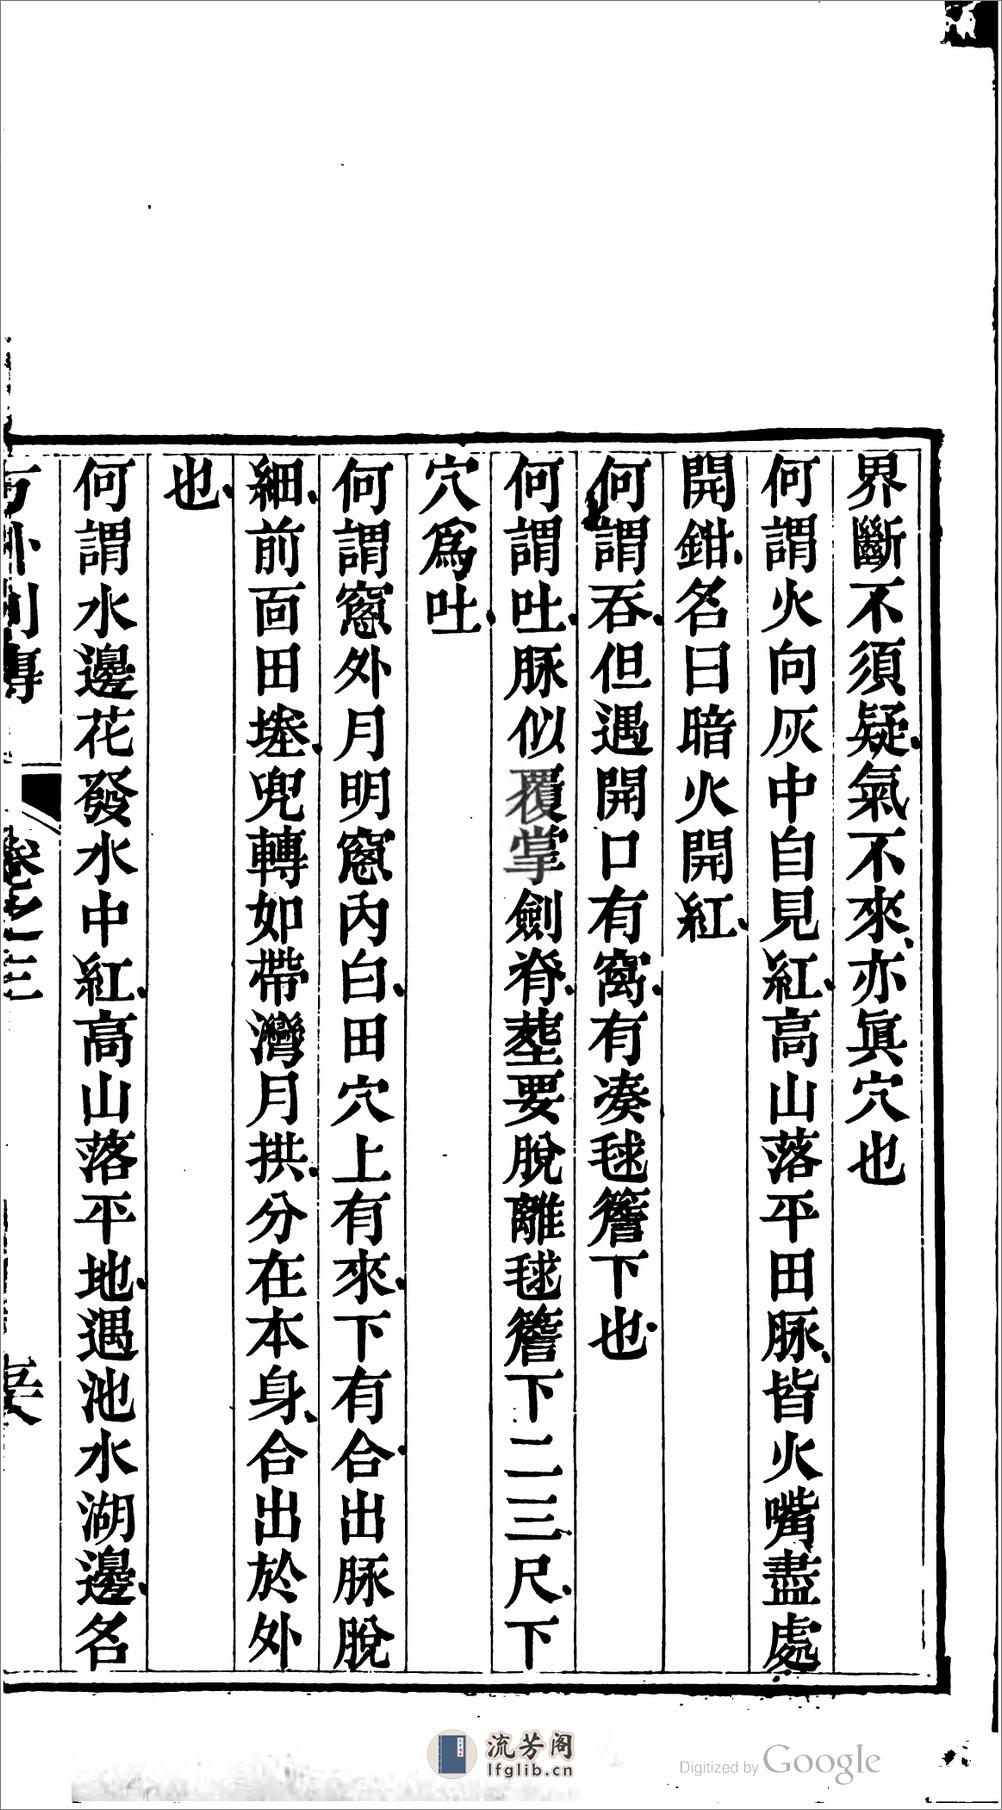 界斷不須疑氣不來亦眞穴也
何謂火向灰中自見紅高山落平田脉皆火嘴盡處
開鉗名曰暗火開紅
何謂吞但遇開口有窩有凑毬簷下也
何謂吐脉似覆掌劍脊塟要脫離毬簷下二三尺下
穴爲吐
何謂窻外月明窻內白田穴上有來下有合出脉脫
細前面田塍兜轉如帶灣月拱分在本身合出於外
也
何謂水邊花發水中紅高山落平地遇池水湖邊名
卷之三
流芳阁
lfglib.cn
Digitized by Google